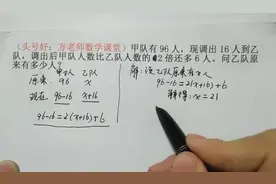 （头号好：方老师数学课堂）甲队有96人，现调出16人到乙
队，调出后甲队人数比乙队人数的2倍还多6人。问乙队原
来有多少人？
甲队 乙队
原来 96 x
现在 96-16 x+16
96-16=2(x+16)+6
解：设乙队原来有x人
96-16=2(x+16)+6
解得：x=21